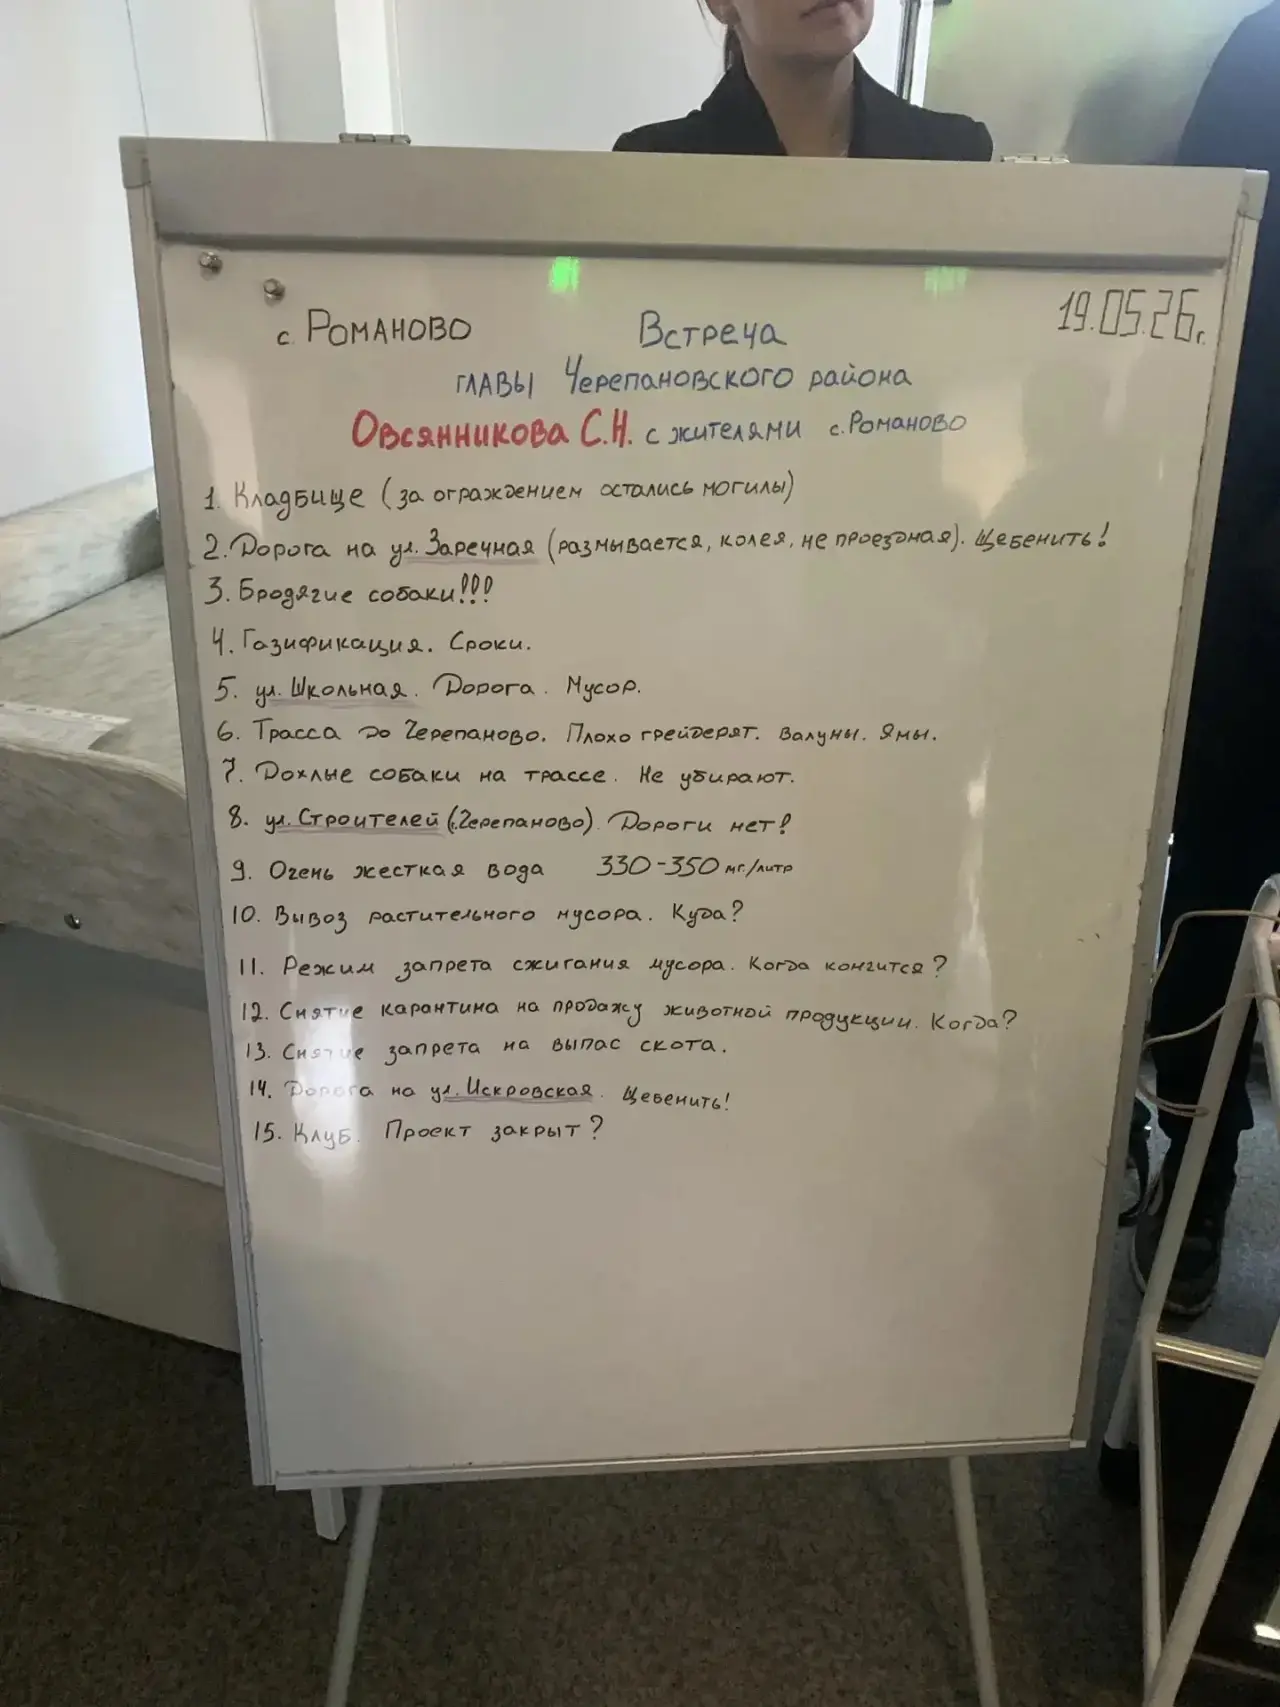 с. Романово
19.05.26г.
Встреча
главы Черепановского района
Овсянникова С.Н. с жителями с. Романово
1. Кладбище (за ограждением остались могилы)
2. Дорога на ул. Заречная (размывается, колея, не проездная). Щебенить!
3. Бродячие собаки!!!
4. Газификация. Сроки.
5. ул. Школьная. Дорога. Мусор.
6. Трасса до Черепаново. Плохо грейдерят. Валуны. Ямы.
7. Дохлые собаки на трассе. Не убирают.
8. ул. Строителей (г. Черепаново). Дороги нет!
9. Очень жесткая вода 330-350 мг./литр
10. Вывоз растительного мусора. Куда?
11. Режим запрета сжигания мусора. Когда кончится?
12. Снятие карантина на продажу животной продукции. Когда?
13. Снятие запрета на выпас скота.
14. Дорога на ул. Искровская. Щебенить!
15. Клуб. Проект закрыт?